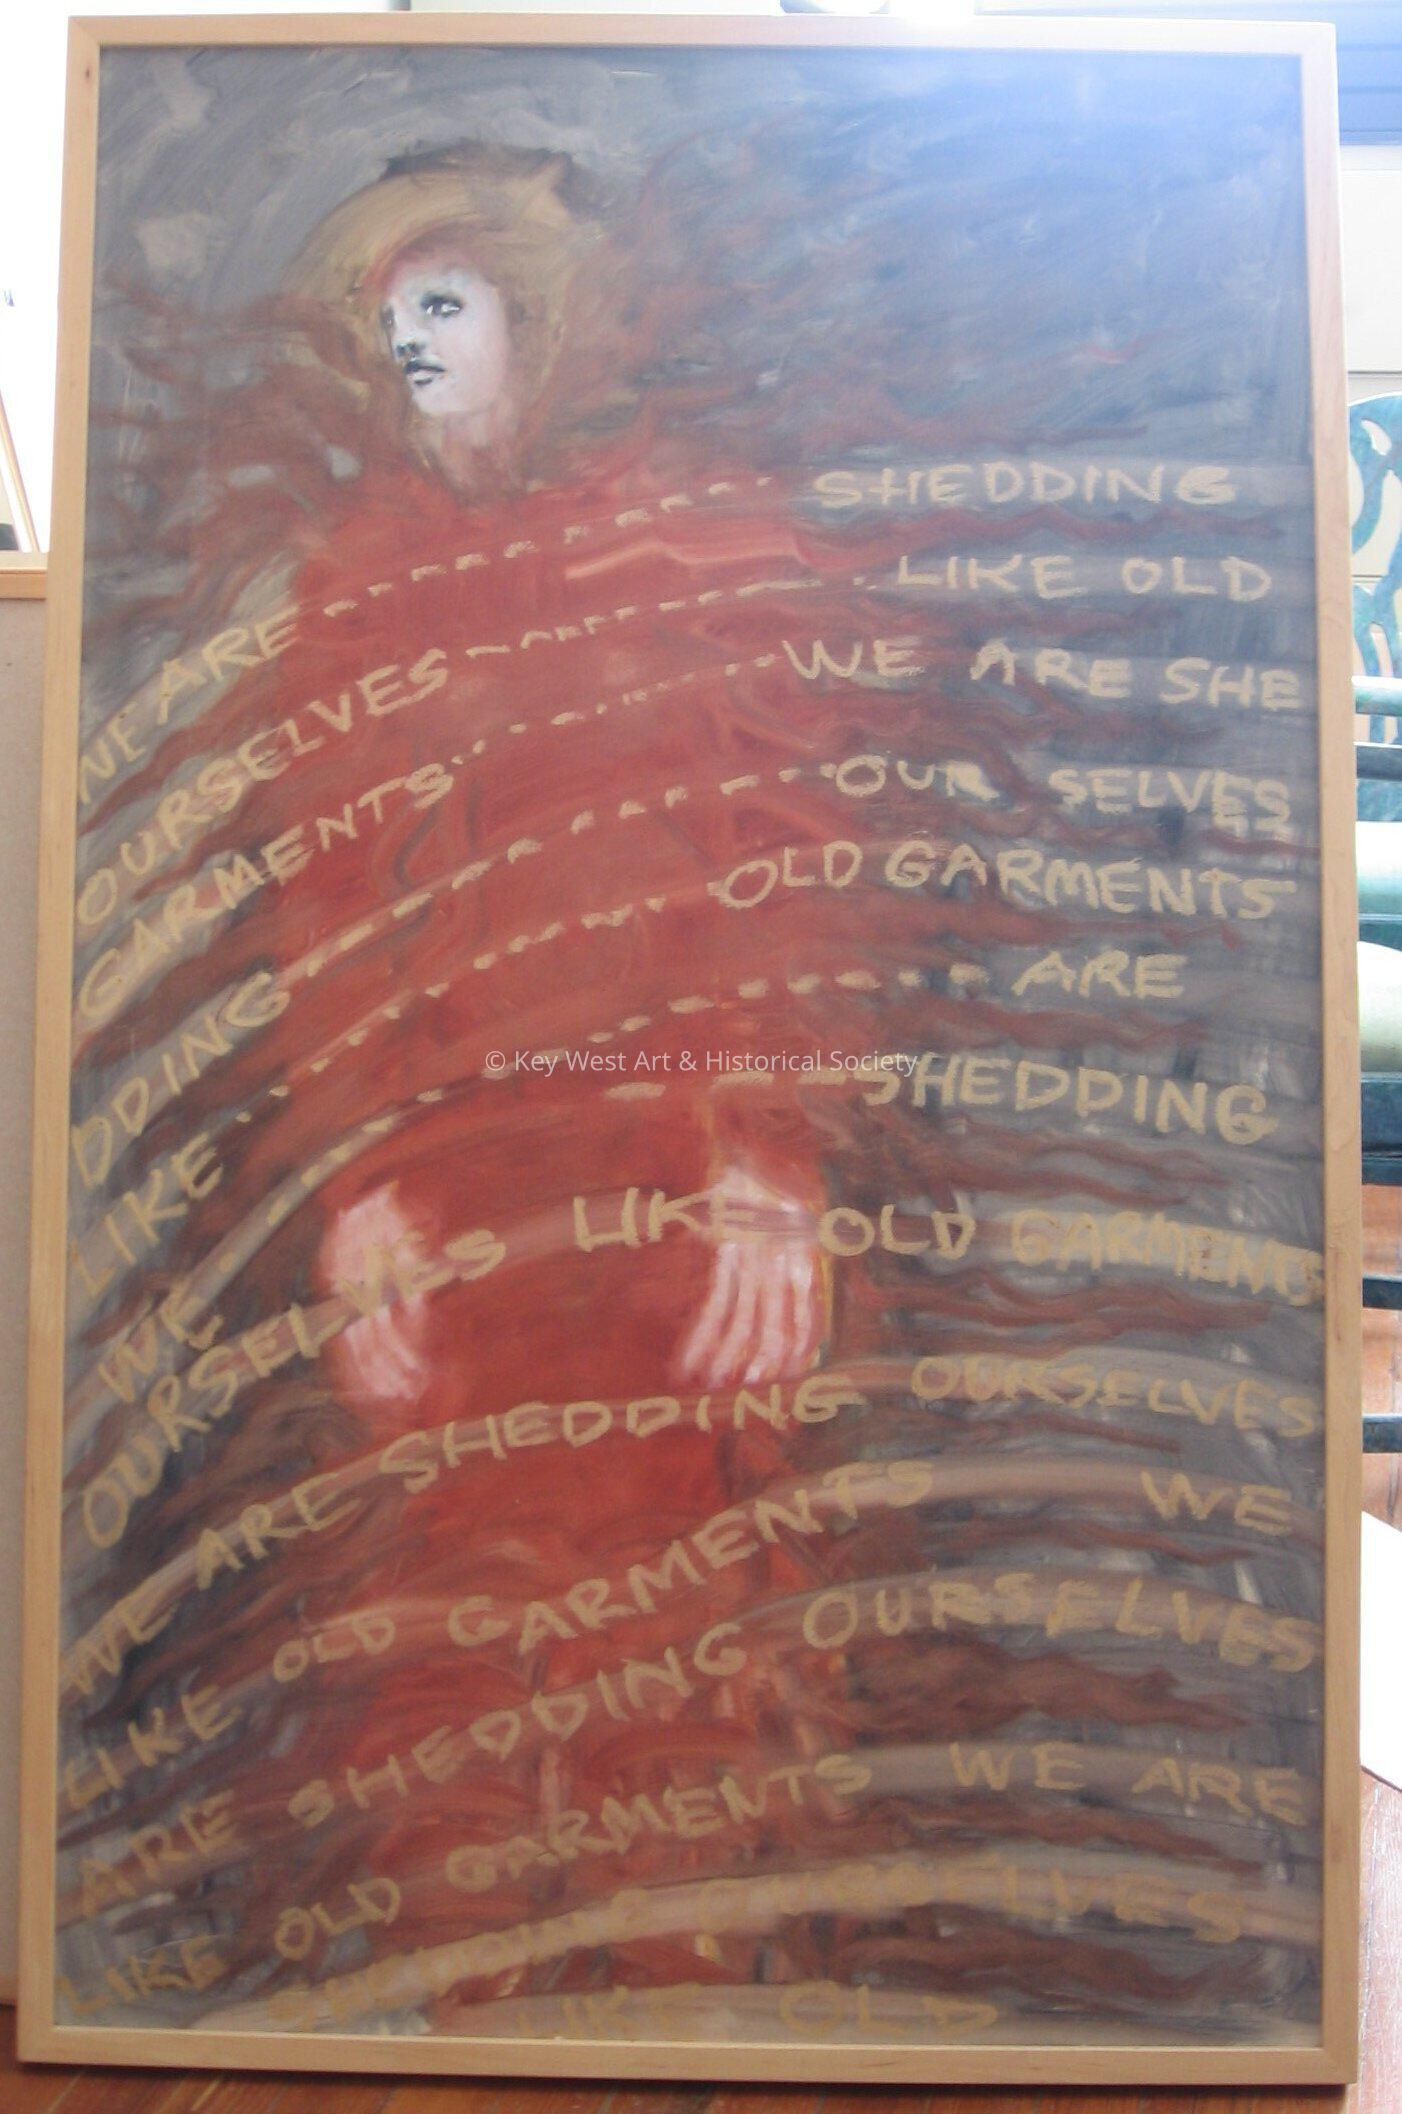 WE ARE SHEDDING
OURSELVES LIKE OLD
GARMENTS WE ARE SHE
DDING OUR SELVES
LIKE OLD GARMENTS
WE ARE
SHEDDING
OURSELVES LIKE OLD GARMENTS
WE ARE SHEDDING OURSELVES
LIKE OLD GARMENTS WE
ARE SHEDDING OURSELVES
LIKE OLD GARMENTS WE ARE
SHEDDING OURSELVES
LIKE OLD
© Key West Art & Historical Society